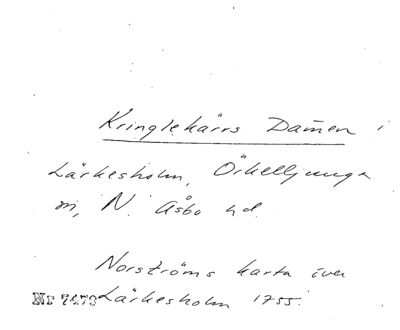 Kringlekärrs Dam̄en i
Lärkesholm, Örkelljunga
m, N. Åsbo hd.
Norströms karta över
Nr 7473 Lärkesholm 1755.